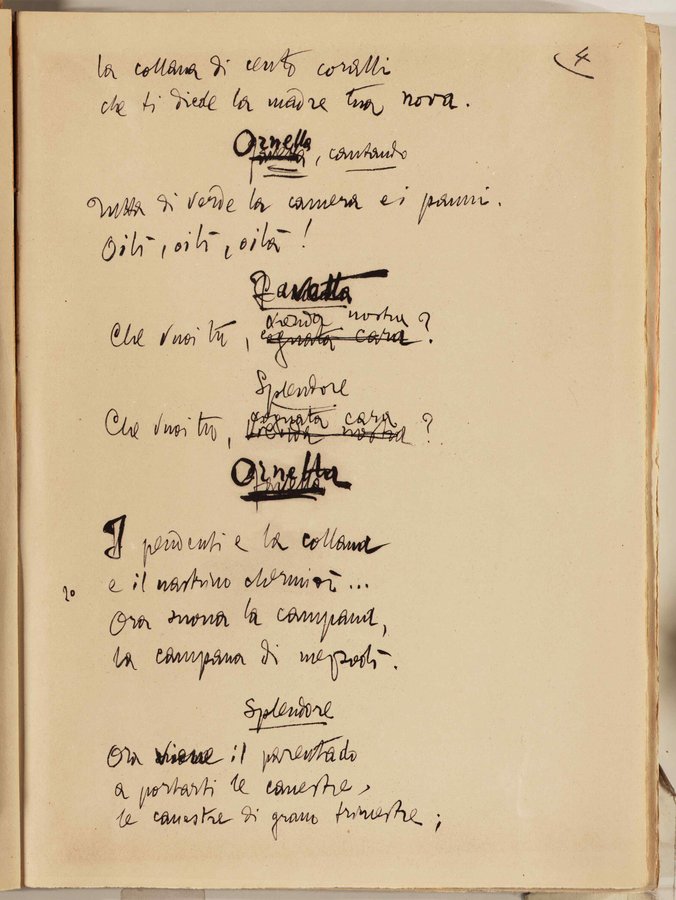 4
la collana di cento coralli
che ti diede la madre tua nova.
Ornella, cantando
Tutta di verde la camera e i panni.
Oilì, oilì, oilà!
Favetta
Vienda nostra
Che vuoi tu, cognata cara?
Splendore
cognata cara
Che vuoi tu, Vienda nostra?
Ornella
Favetta
I pendenti e la collana
e il nastrino chermisì...
20
Ora suona la campana,
la campana di mezzodì.
Splendore
Ora viene il parentado
a portarti le canestre,
le canestre di grano trimestre;